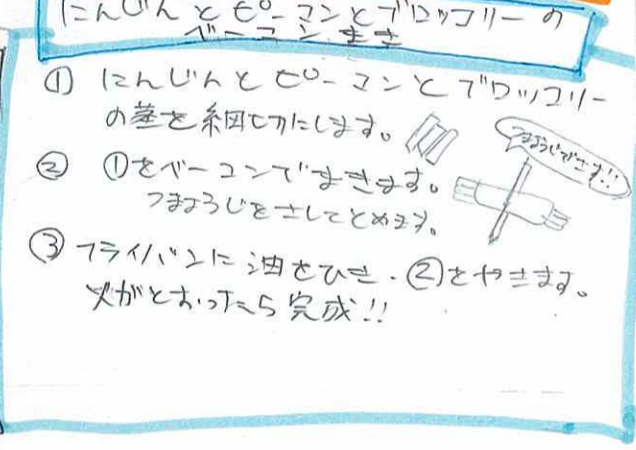 にんじんとピーマンとブロッコリーの
ベーコンまき
① にんじんとピーマンとブロッコリー
の茎を細切にします。
② ①をベーコンでまきます。
つまようじをさしてとめます。
つまようじでさす!!
③ フライパンに油をひき、②をやきます。
火がとおったら完成!!